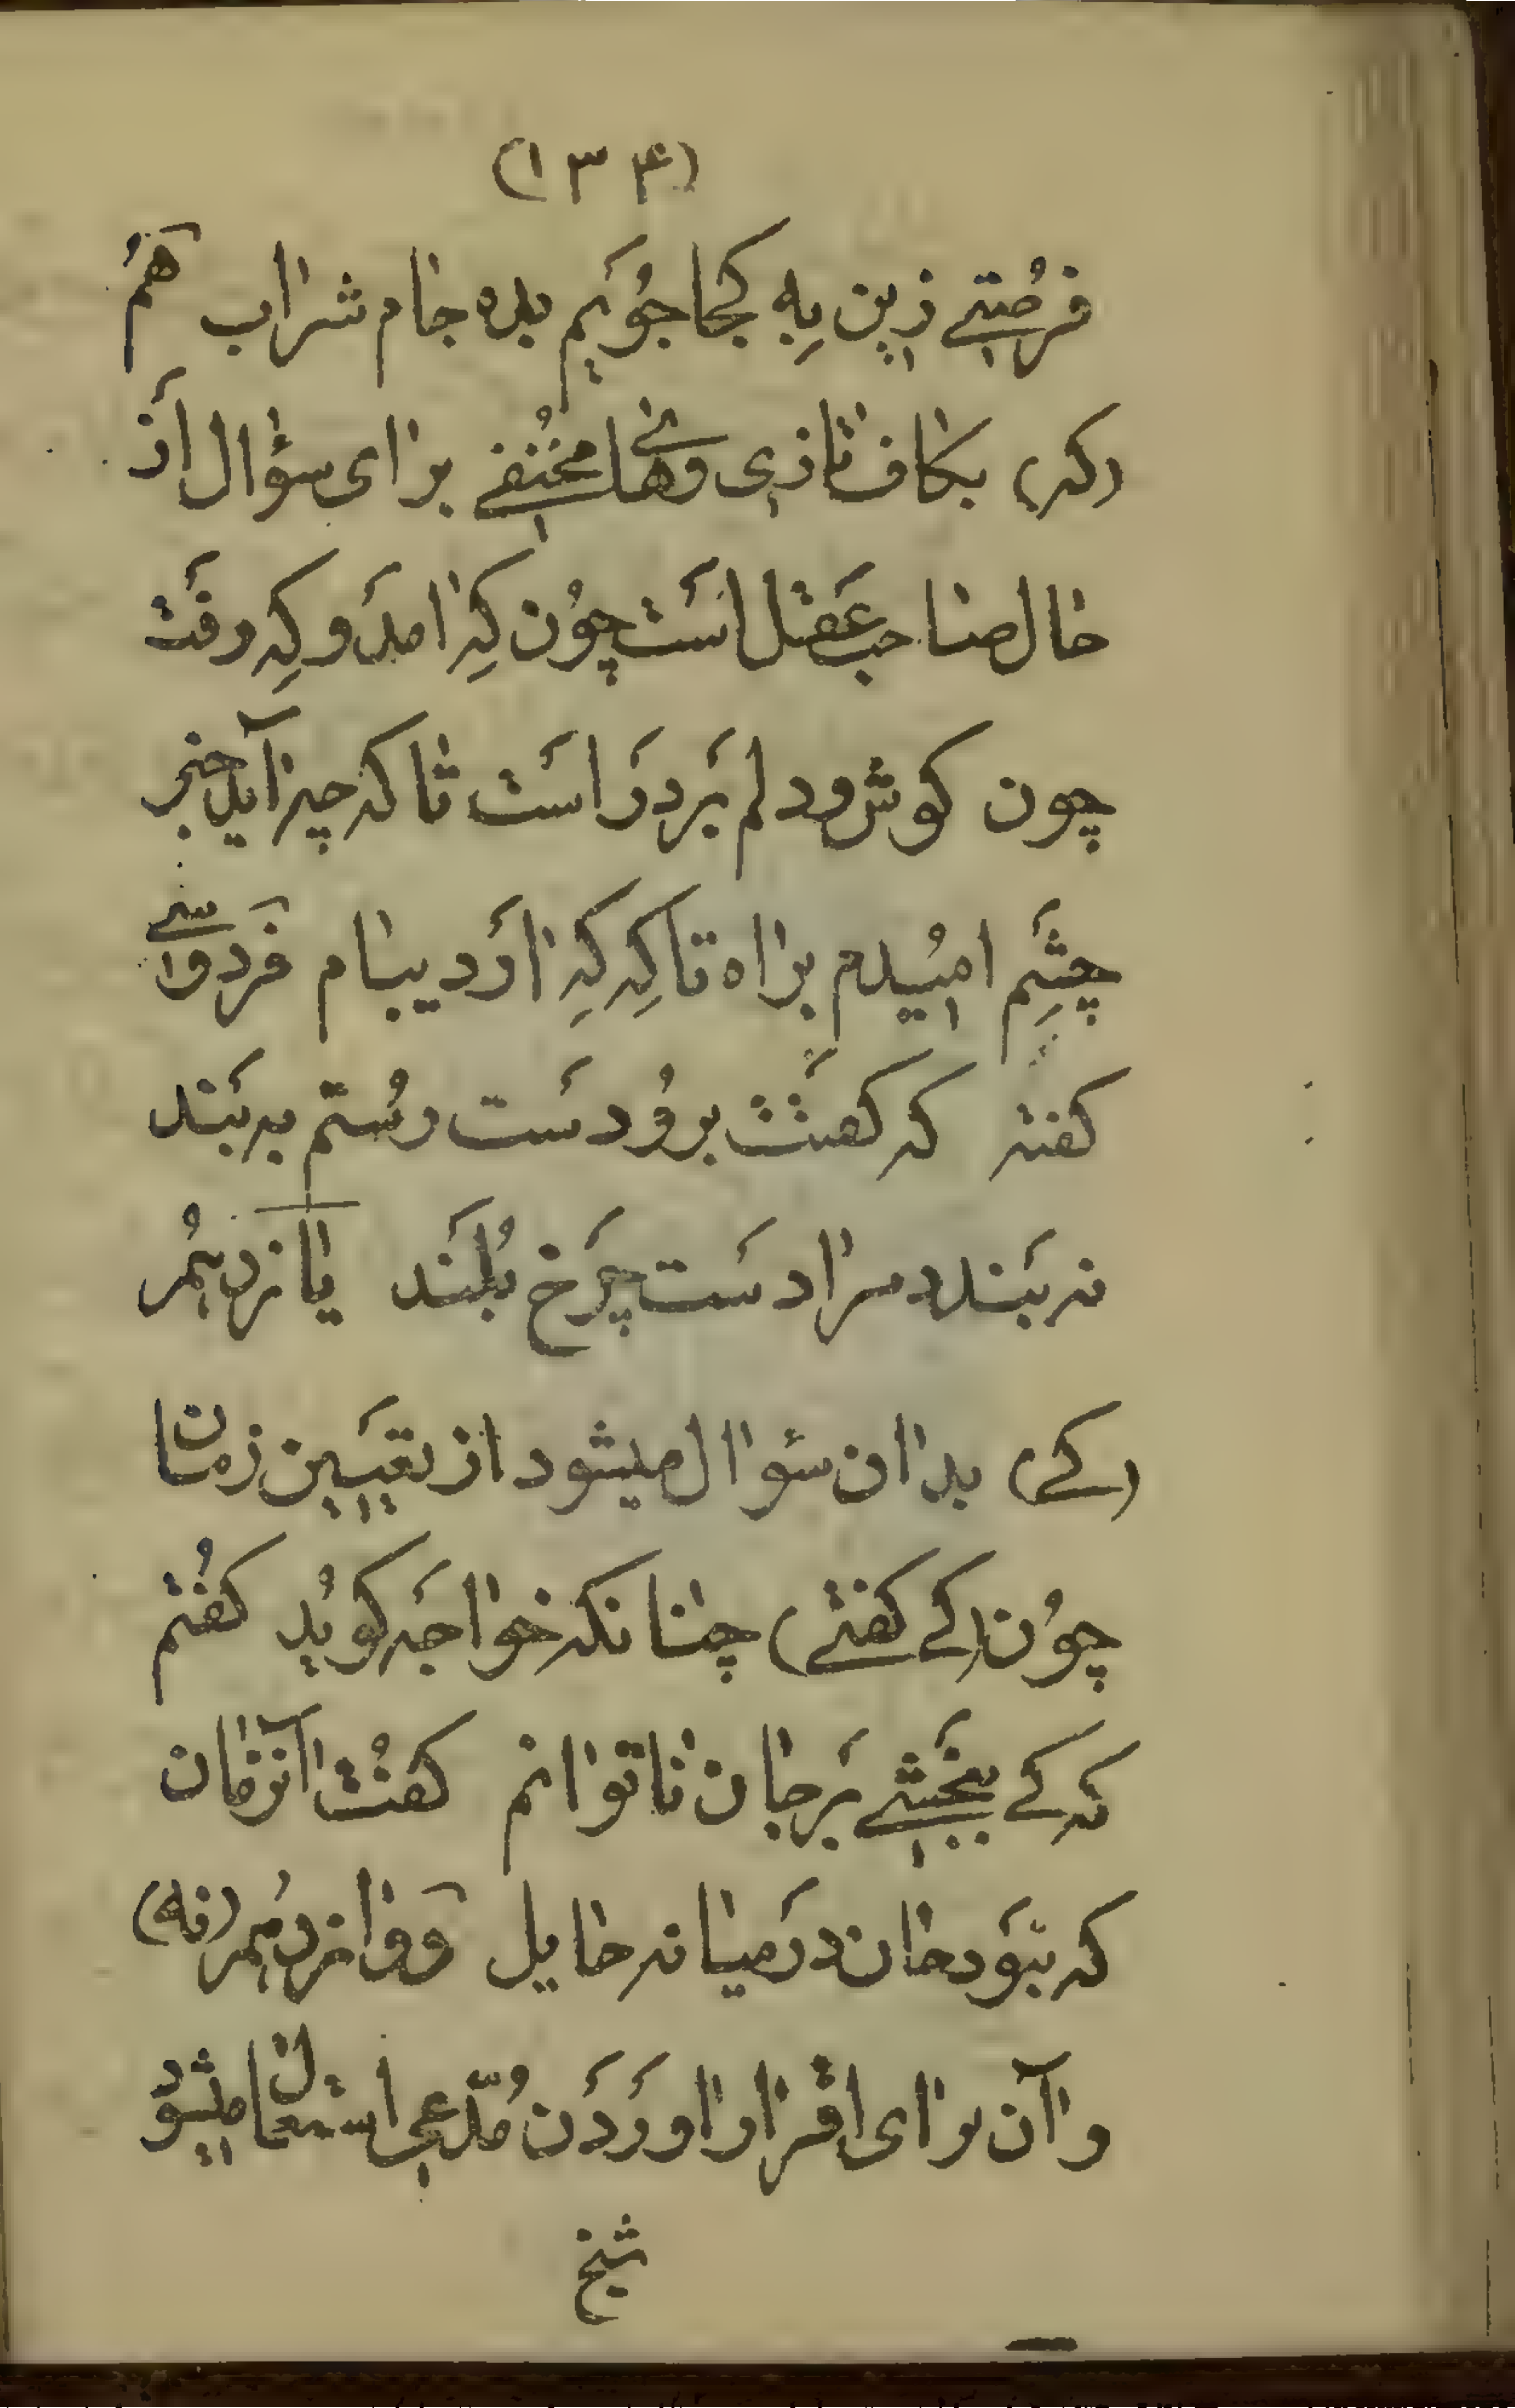 (۱۳۴)
فرُصتے زین بِه کجا جوُیَم بده جام شراب هَمُ
(که) بکاف تازی وهائے مختفے برای سؤال اَز
حال صاحب عَقل اسَت چوُن کِه امدَ وکِه رفَت
چون کوش ودلم بَردَر اسَت تا که چیز آید خبر
چشَمِ امیُدم براه تا کِه کِه ارَد پیام فَردوسے
کفته که کفتَت بروُ دسَت رسُتم به بَند
نه بَندد مرا دسَت چَرخ بُلَند یازدهُم
(کے) بدان سئوال میشود از تعیَین زمان
چوُن (کے کفتے) چنانکه خواجَه کویُد کفُتم
که کے ببخَشے بَر جان ناتوانم کفُت آنزمان
که نبَوَد جان دَر میانه حایل دَوازدهُم (نه)
وآن برای اقرار اورَدَن مُدّعی استعمال میشود
شیخ